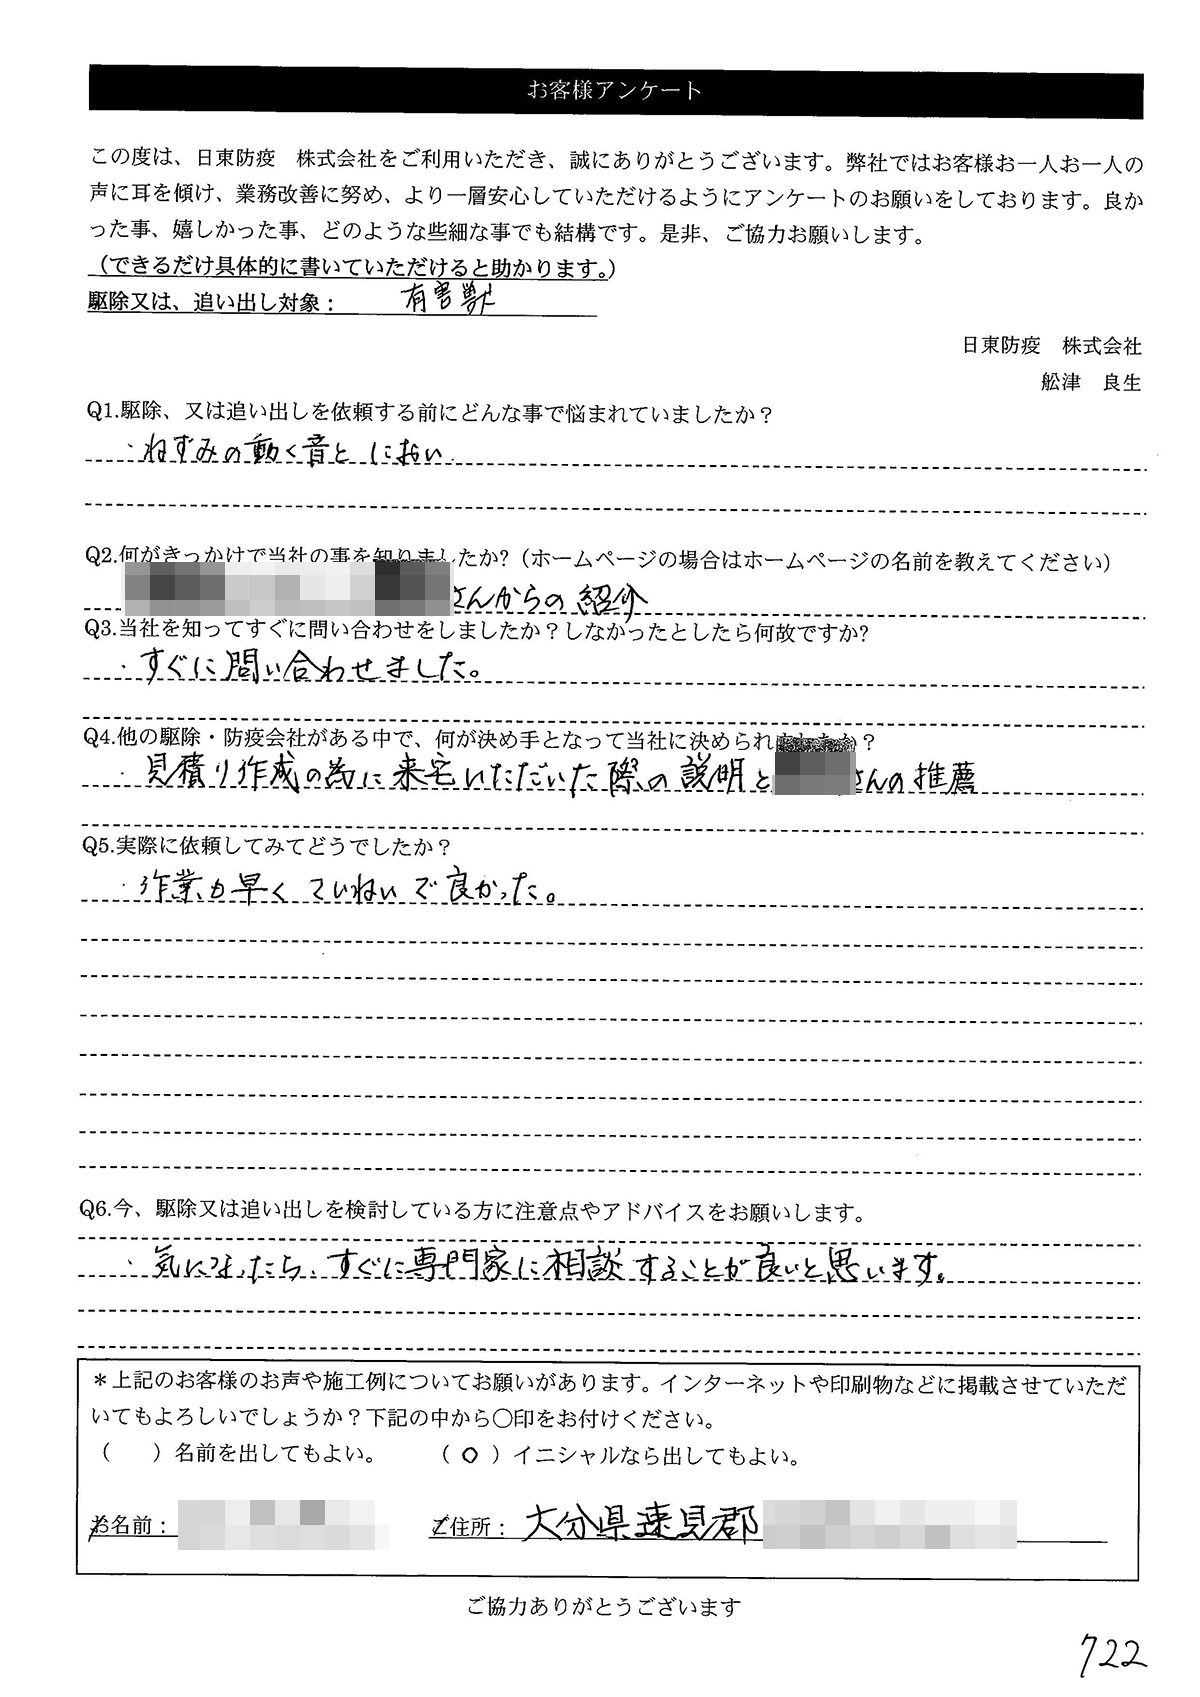 お客様アンケート
この度は、日東防疫　株式会社をご利用いただき、誠にありがとうございます。弊社ではお客様お一人お一人の
声に耳を傾け、業務改善に努め、より一層安心していただけるようにアンケートのお願いをしております。良か
った事、嬉しかった事、どのような些細な事でも結構です。是非、ご協力お願いします。
（できるだけ具体的に書いていただけると助かります。）
駆除又は、追い出し対象： 有害獣
日東防疫　株式会社
舩津　良生
Q1.駆除、又は追い出しを依頼する前にどんな事で悩まれていましたか？
・ねずみの動く音と におい
Q2.何がきっかけで当社の事を知りましたか?（ホームページの場合はホームページの名前を教えてください）
さんからの紹介
Q3.当社を知ってすぐに問い合わせをしましたか？しなかったとしたら何故ですか?
・すぐに問い合わせました。
Q4.他の駆除・防疫会社がある中で、何が決め手となって当社に決められましたか？
・見積り作成の為に来宅いただいた際の説明と さんの推薦
Q5.実際に依頼してみてどうでしたか？
・作業も早く ていねいで良かった。
Q6.今、駆除又は追い出しを検討している方に注意点やアドバイスをお願いします。
・気になったら、すぐに専門家に相談することが良いと思います。
＊上記のお客様のお声や施工例についてお願いがあります。インターネットや印刷物などに掲載させていただ
いてもよろしいでしょうか？下記の中から〇印をお付けください。
（　　）名前を出してもよい。　　（ ○ ）イニシャルなら出してもよい。
お名前： ご住所： 大分県速見郡
ご協力ありがとうございます
722